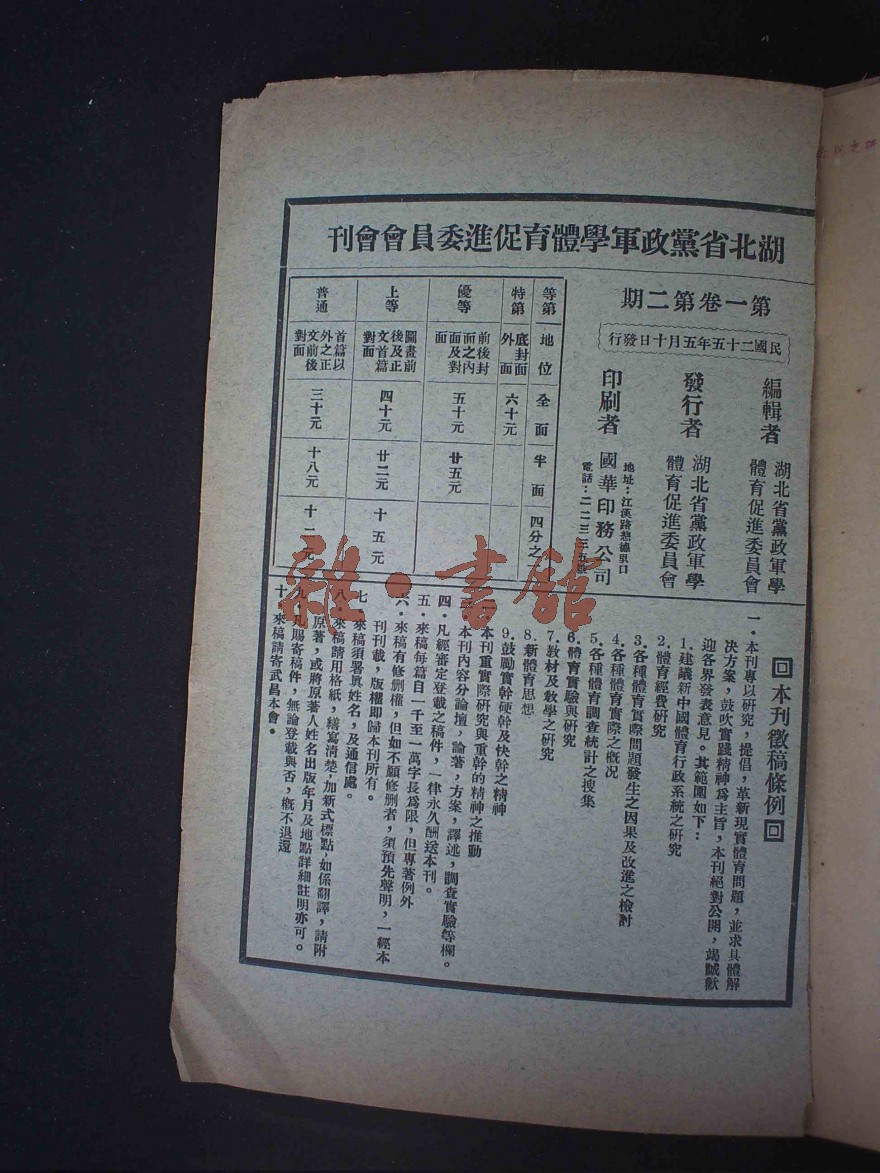 湖北省黨政軍學體育促進委員會會刊
第一卷第二期
民國二十五年五月十日發行
編輯者
湖北省黨政軍學
體育促進委員會
發行者
湖北省黨政軍學
體育促進委員會
印刷者
國華印務公司
地址：江漢路
電話：二一二三
等第 地位 全面 半面 四分之一
特第 底封面外面 六十元
優等 前後封面之內面及對面 五十元 廿五元
上等 圖畫前後及正文首篇對面 四十元 廿二元 十五元
普通 首篇以外之正文前後對面 三十元 十八元 十二元
本刊徵稿條例
一．本刊專以研究，提倡，革新現實體育問題，並求具體解
決方案，鼓吹實踐精神爲主旨，本刊絕對公開，竭誠歡
迎各界發表意見。其範圍如下：
1.建議新中國體育行政系統之研究
2.體育經費研究
3.各種體育實際問題發生之因果及改進之檢討
4.各種體育實際之概况
5.各種體育調查統計之搜集
6.體育實驗與研究
7.教材及教學之研究
8.新體育思想
9.鼓勵實幹硬幹及快幹之精神
二．本刊重實際研究與重幹的精神之推動
三．本刊內容分論壇，論著，方案，譯述，調查實驗等欄。
四．凡經審定登載之稿件，一律永久酬送本刊。
五．來稿每篇自一千至一萬字長爲限，但專著例外
六．來稿有修删權，但如不願修删者，須預先聲明，一經本
刊刊載，版權即歸本刊所有。
七．來稿須署眞姓名，及通信處。
八．來稿請用格紙，繕寫清楚，加新式標點，如係翻譯，請附
原著，或將原著人姓名出版年月及地點詳細註明亦可。
九．凡賜寄稿件，無論登載與否，概不退還
十．來稿請寄武昌本會。
雜·書館